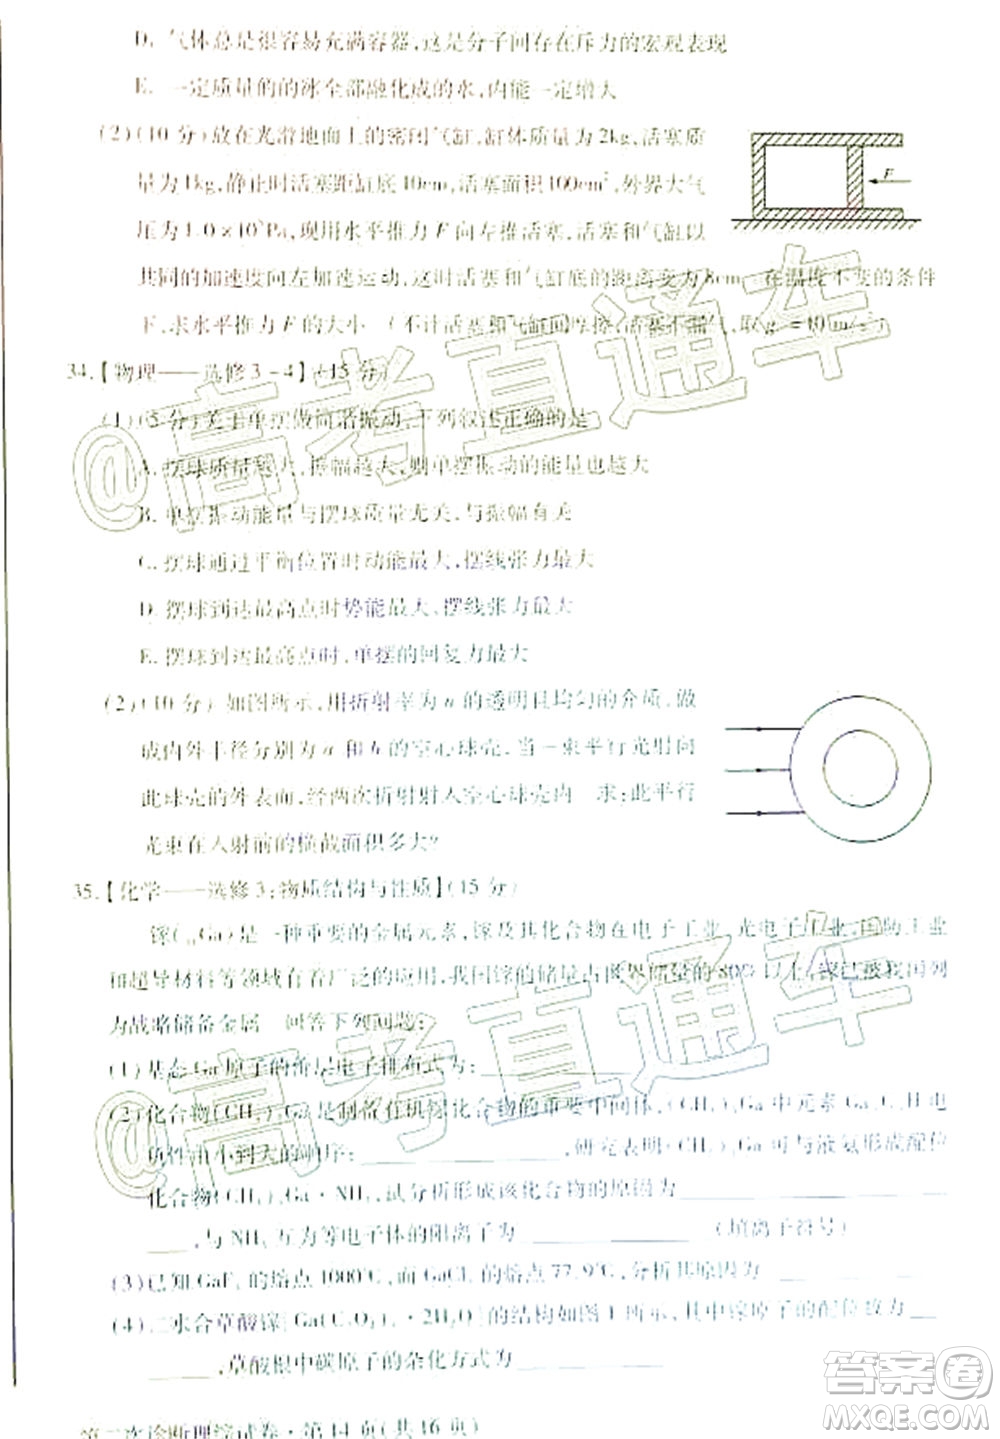 D. 气体总是很容易充满容器,这是分子间存在斥力的宏观表现
E. 一定质量的的冰全部融化成的水,内能一定增大
(2)(10 分)放在光滑地面上的密闭气缸,缸体质量为2kg,活塞质
量为1kg,静止时活塞距缸底10cm,活塞面积100cm²,外界大气
压为1.0×10⁵Pa,现用水平推力 F 向左推活塞,活塞和气缸以
F
共同的加速度向左加速运动,这时活塞和气缸底的距离变为8cm,在温度不变的条件
下,求水平推力 F 的大小 (不计活塞和气缸间摩擦,活塞不漏气,取g =10m/s²)
34.【物理——选修 3-4】(15 分)
(1)(5 分)关于单摆做简谐振动,下列叙述正确的是
A. 摆球质量越大,振幅越大,则单摆振动的能量也越大
B. 单摆振动能量与摆球质量无关,与振幅有关
C. 摆球通过平衡位置时动能最大,摆线张力最大
D. 摆球到达最高点时势能最大,摆线张力最大
E. 摆球到达最高点时,单摆的回复力最大
(2)(10 分) 如图所示,用折射率为 n 的透明且均匀的介质,做
成内外半径分别为 a 和 b 的空心球壳,当一束平行光射向
此球壳的外表面,经两次折射射入空心球壳内 求:此平行
光束在入射前的横截面积多大?
35.【化学——选修 3:物质结构与性质】(15 分)
镓( Ga)是一种重要的金属元素,镓及其化合物在电子工业,光电子工业,国防工业
和超导材料等领域有着广泛的应用,我国镓的储量占世界储量的80% 以上,镓已被我国列
为战略储备金属 回答下列问题:
(1)基态 Ga 原子的价层电子排布式为:
(2)化合物(CH₃)₃Ga是制备有机镓化合物的重要中间体,(CH₃)₃Ga中元素 Ga、C、H 电
负性由小到大的顺序: ,研究表明(CH₃)₃Ga 可与液氨形成配位
化合物(CH₃)₃Ga·NH₃,试分析形成该化合物的原因为
,与 NH₃ 互为等电子体的阳离子为 (填离子符号)
(3)已知 GaF₃ 的熔点 1000℃,而 GaCl₃ 的熔点 77.9℃,分析其原因为
(4)二水合草酸镓[Ga(C₂O₄) ·2H₂O]的结构如图 1 所示,其中镓原子的配位数为
,草酸根中碳原子的杂化方式为
第二次诊断理综试卷·第 14 页(共 16 页)
@高考直通车
@高考直通车
答案卷
MXQE.COM